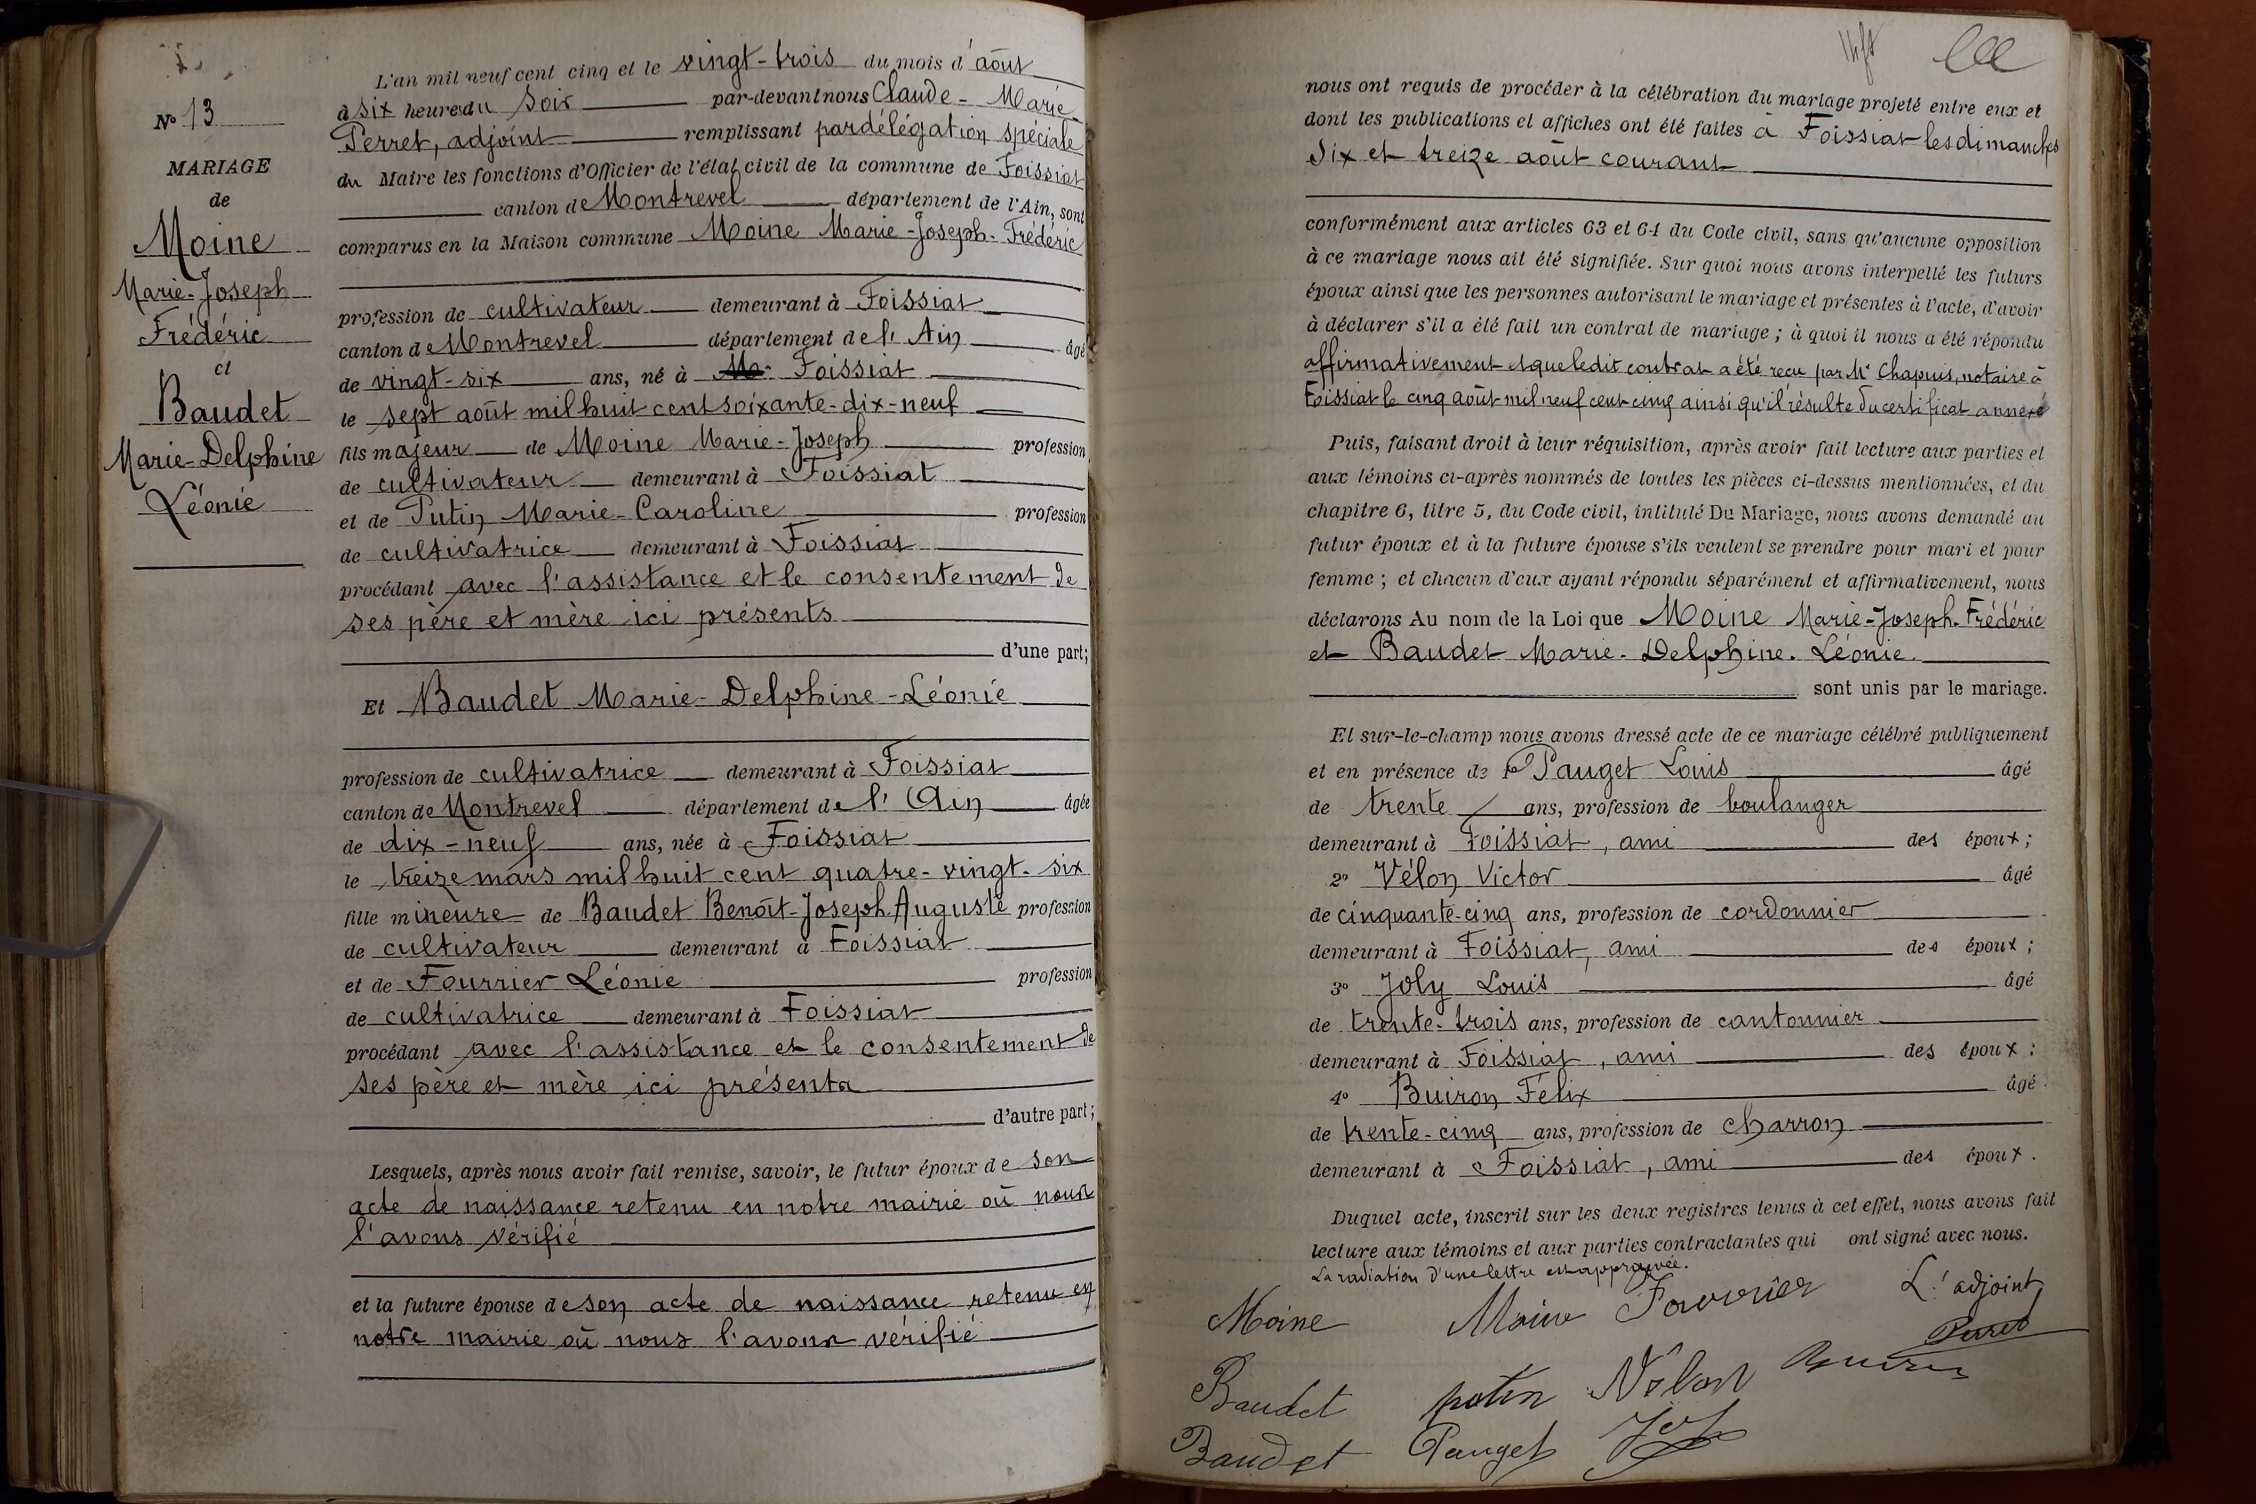 N° 13
MARIAGE
de
Moine
Marie-Joseph
Frédéric
et
Baudet
Marie-Delphine
Léonie
L'an mil neuf cent cinq et le vingt-trois du mois d'août
à six heure du soir par-devant nous Claude-Marie
Perret, adjoint remplissant par délégation spéciale
du Maire les fonctions d'Officier de l'état civil de la commune de Foissiat
canton de Montrevel département de l'Ain, sont
comparus en la Maison commune Moine Marie-Joseph-Frédéric
profession de cultivateur demeurant à Foissiat
canton de Montrevel département de l'Ain âgé
de vingt-six ans, né à Foissiat
le sept août mil huit cent soixante-dix-neuf
fils majeur de Moine Marie-Joseph profession
de cultivateur demeurant à Foissiat
et de Putin Marie-Caroline profession
de cultivatrice demeurant à Foissiat
procédant avec l'assistance et le consentement de
ses père et mère ici présents
d'une part;
Et Baudet Marie-Delphine-Léonie
profession de cultivatrice demeurant à Foissiat
canton de Montrevel département de l'Ain âgée
de dix-neuf ans, née à Foissiat
le treize mars mil huit cent quatre-vingt-six
fille mineure de Baudet Benoît-Joseph Auguste profession
de cultivateur demeurant à Foissiat
et de Fourrier Léonie profession
de cultivatrice demeurant à Foissiat
procédant avec l'assistance et le consentement de
ses père et mère ici présents
d'autre part;
Lesquels, après nous avoir fait remise, savoir, le futur époux de son
acte de naissance retenu en notre mairie où nous
l'avons vérifié
et la future épouse de son acte de naissance retenu en
notre mairie où nous l'avons vérifié
nous ont requis de procéder à la célébration du mariage projeté entre eux et
dont les publications et affiches ont été faites à Foissiat les dimanches
six et treize août courant
conformément aux articles 63 et 64 du Code civil, sans qu'aucune opposition
à ce mariage nous ait été signifiée. Sur quoi nous avons interpellé les futurs
époux ainsi que les personnes autorisant le mariage et présentes à l'acte, d'avoir
à déclarer s'il a été fait un contrat de mariage ; à quoi il nous a été répondu
affirmativement et que ledit contrat a été reçu par Me Chapuis, notaire à
Foissiat le cinq août mil neuf cent cinq ainsi qu'il résulte du certificat annexé
Puis, faisant droit à leur réquisition, après avoir fait lecture aux parties et
aux témoins ci-après nommés de toutes les pièces ci-dessus mentionnées, et du
chapitre 6, titre 5, du Code civil, intitulé Du Mariage, nous avons demandé au
futur époux et à la future épouse s'ils veulent se prendre pour mari et pour
femme ; et chacun d'eux ayant répondu séparément et affirmativement, nous
déclarons Au nom de la Loi que Moine Marie-Joseph-Frédéric
et Baudet Marie-Delphine-Léonie
sont unis par le mariage.
Et sur-le-champ nous avons dressé acte de ce mariage célébré publiquement
et en présence de 1° Pauget Louis âgé
de trente ans, profession de boulanger
demeurant à Foissiat, ami des époux ;
2° Vélon Victor âgé
de cinquante-cinq ans, profession de cordonnier
demeurant à Foissiat, ami des époux ;
3° Joly Louis âgé
de trente-trois ans, profession de cantonnier
demeurant à Foissiat, ami des époux ;
4° Buiron Félix âgé
de trente-cinq ans, profession de charron
demeurant à Foissiat, ami des époux.
Duquel acte, inscrit sur les deux registres tenus à cet effet, nous avons fait
lecture aux témoins et aux parties contractantes qui ont signé avec nous.
La radiation d'une lettre est approuvée.
Moine Moine Fourrier L'adjoint
Perret
Baudet putin Vélon Buiron
Baudet Pauget Joly